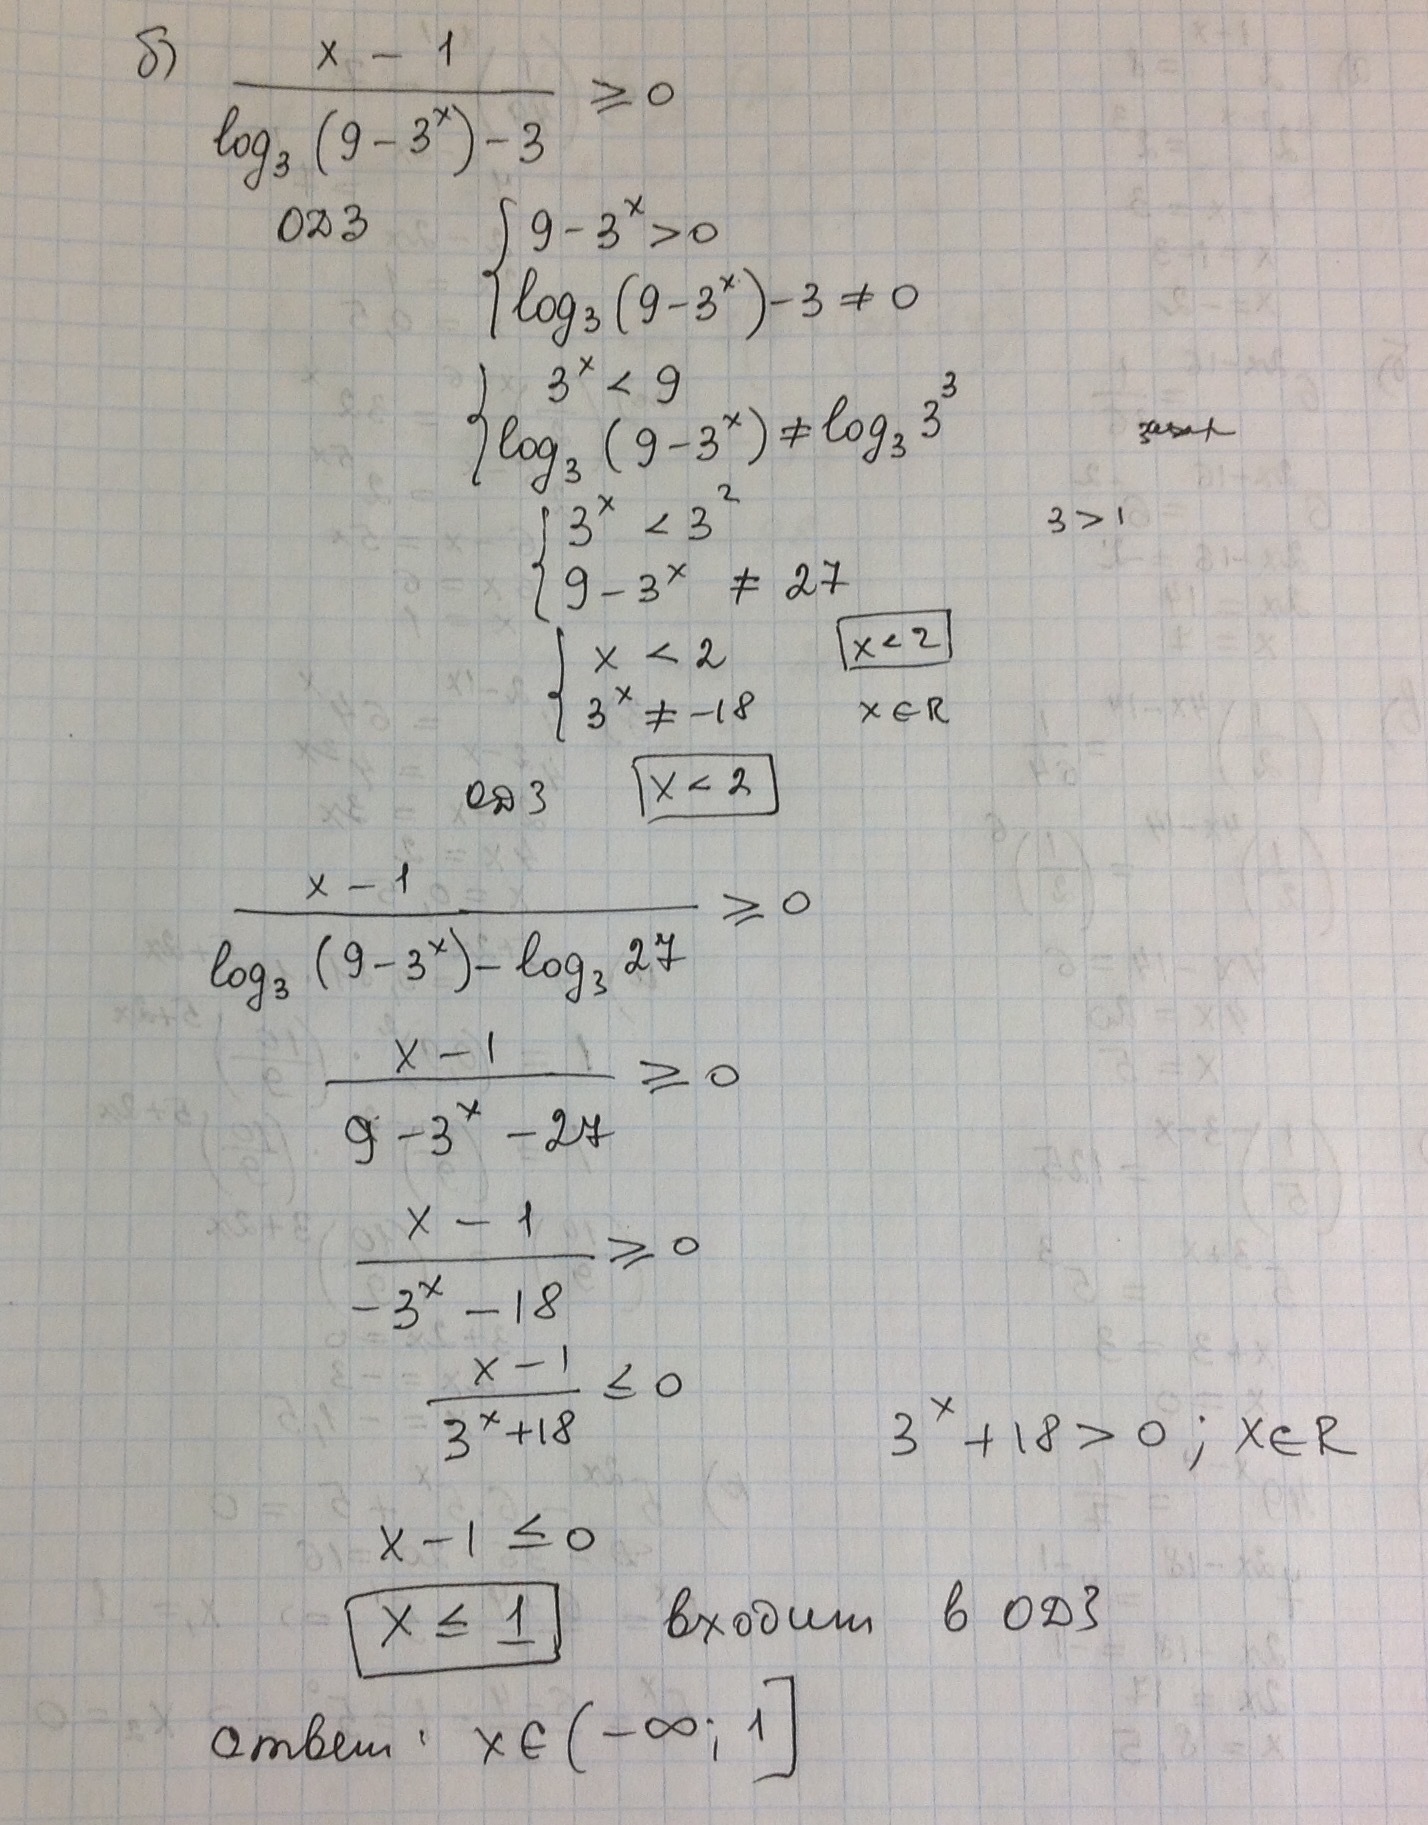 б) x - 1 / log₃(9 - 3ˣ) - 3 ≥ 0
ОДЗ { 9 - 3ˣ > 0
log₃(9 - 3ˣ) - 3 ≠ 0
{ 3ˣ < 9
log₃(9 - 3ˣ) ≠ log₃3³
{ 3ˣ < 3² 3 > 1
9 - 3ˣ ≠ 27
{ x < 2 x < 2
3ˣ ≠ -18 x ∈ R
ОДЗ x < 2
x - 1 / log₃(9 - 3ˣ) - log₃27 ≥ 0
x - 1 / 9 - 3ˣ - 27 ≥ 0
x - 1 / -3ˣ - 18 ≥ 0
x - 1 / 3ˣ + 18 ≤ 0 3ˣ + 18 > 0; x ∈ R
x - 1 ≤ 0
x ≤ 1 входит в ОДЗ
ответ: x ∈ (-∞; 1]